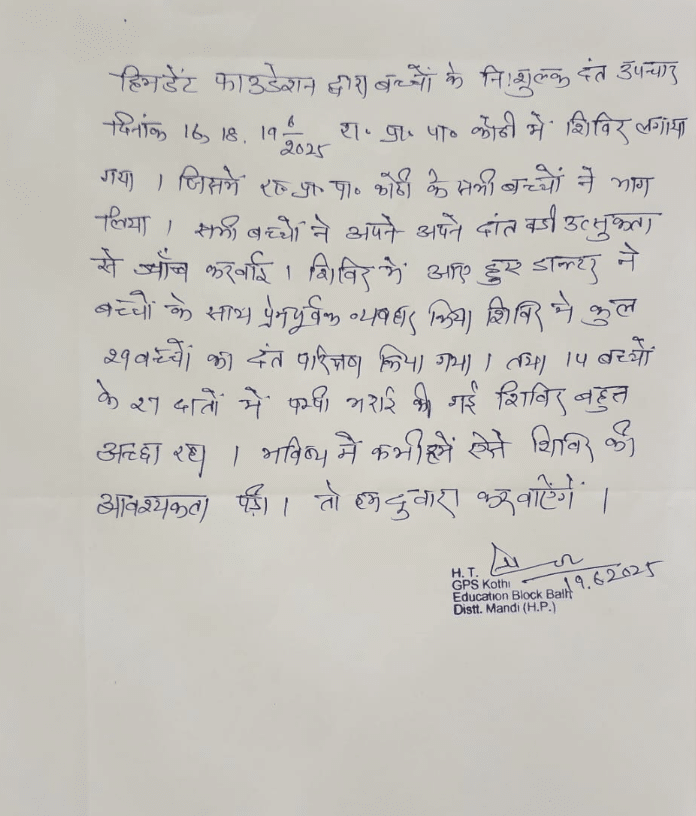 हिमडेंट फाउंडेशन द्वारा बच्चों के नि:शुल्क दंत उपचार
दिनांक 16, 18, 19 6/2025 रा. प्रा. पा० कोठी में शिविर लगाया
गया । जिसमें रा० प्रा० पा० कोठी के सभी बच्चों ने भाग
लिया । सभी बच्चों ने अपने अपने दांत बडी उत्सुकता
से जाँच करवाई । शिविर में आए हुए डाक्टर ने
बच्चों के साथ प्रेमपूर्वक व्यवहार किया शिविर मे कुल
29 बच्चों का दंत परिक्षण किया गया । तथा 14 बच्चों
के 27 दातों में पक्की भराई की गई शिविर बहुत
अच्छा रहा । भविष्य में कभी हमें ऐसे शिविर की
आवश्यकता पड़ी । तो हम दुवारा करवाऐंगें ।
H. T.
GPS Kothi 19.6.2025
Education Block Balh
Distt. Mandi (H.P.)